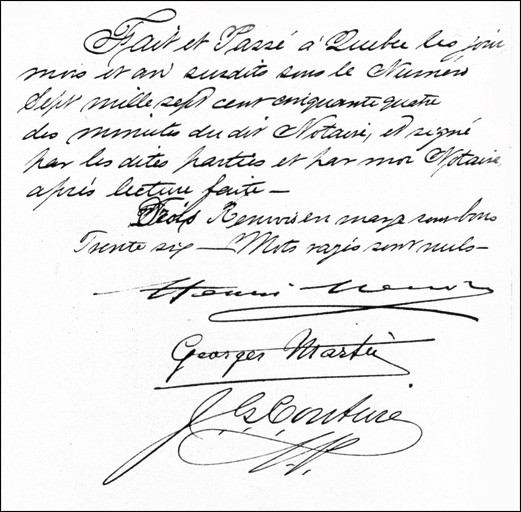 Fait et Passé à Quebec les jour
mois et an susdits sous le Numéro
Sept mille sept cent cinquante quatre
des minutes du dit Notaire, et signé
par les dites parties et par moi Notaire,
après lecture faite —
Trois Renvois en marge sont bons
Trente six — Mots rayés sont nuls —
Henri
Georges Martin
J. G. Couture
N.P.